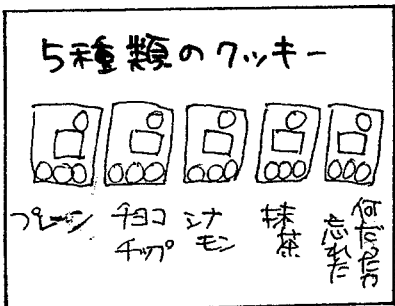 5種類のクッキー
プレーン
チョコ
チップ
シナ
モン
抹茶
何だったか
忘れた